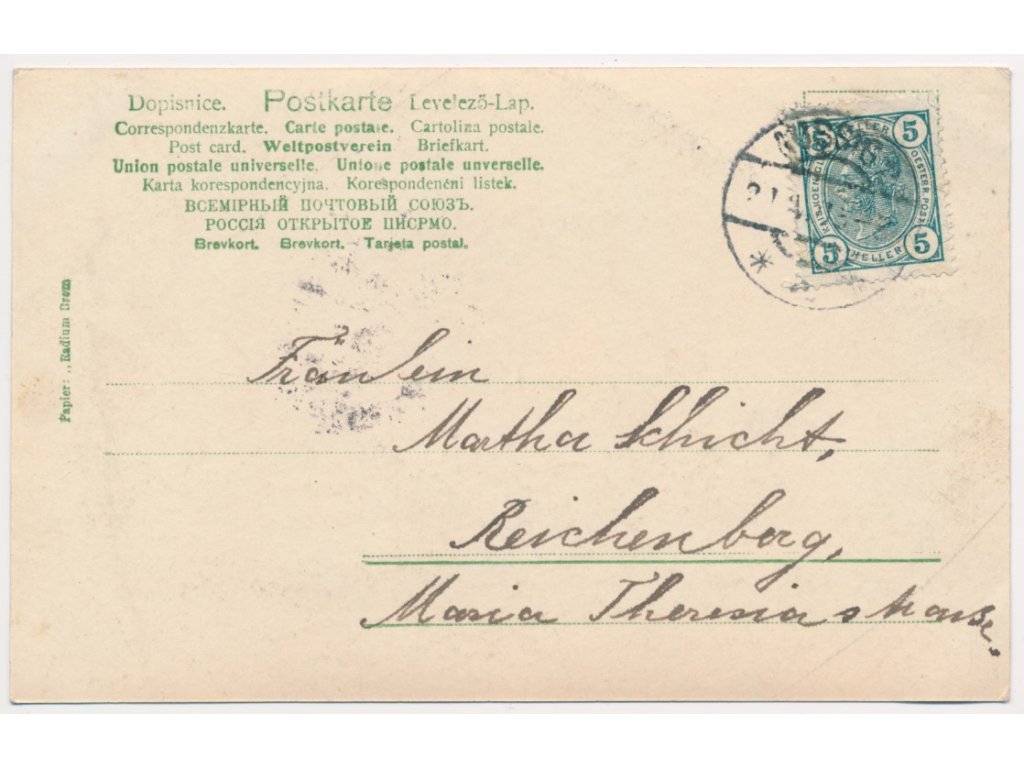 Dopisnice. Postkarte Levelező-Lap.
Correspondenzkarte. Carte postale. Cartolina postale.
Post card. Weltpostverein Briefkart.
Union postale universelle. Unione postale unverselle.
Karta korespondencyjna. Korespondenčni listek.
ВСЕМІРНЫЙ ПОЧТОВЫЙ СОЮЗЪ.
РОССІЯ ОТКРЫТОЕ ПИСРМО.
Brevkort. Brevkort. Tarjeta postal.
5 HELLER 5
KAIS. KOENIGL. OESTERR. POST
5 HELLER 5
Papier: „Radium Brom
Fräulein
Martha Schicht,
Reichenberg,
Maria Theresia strasse.